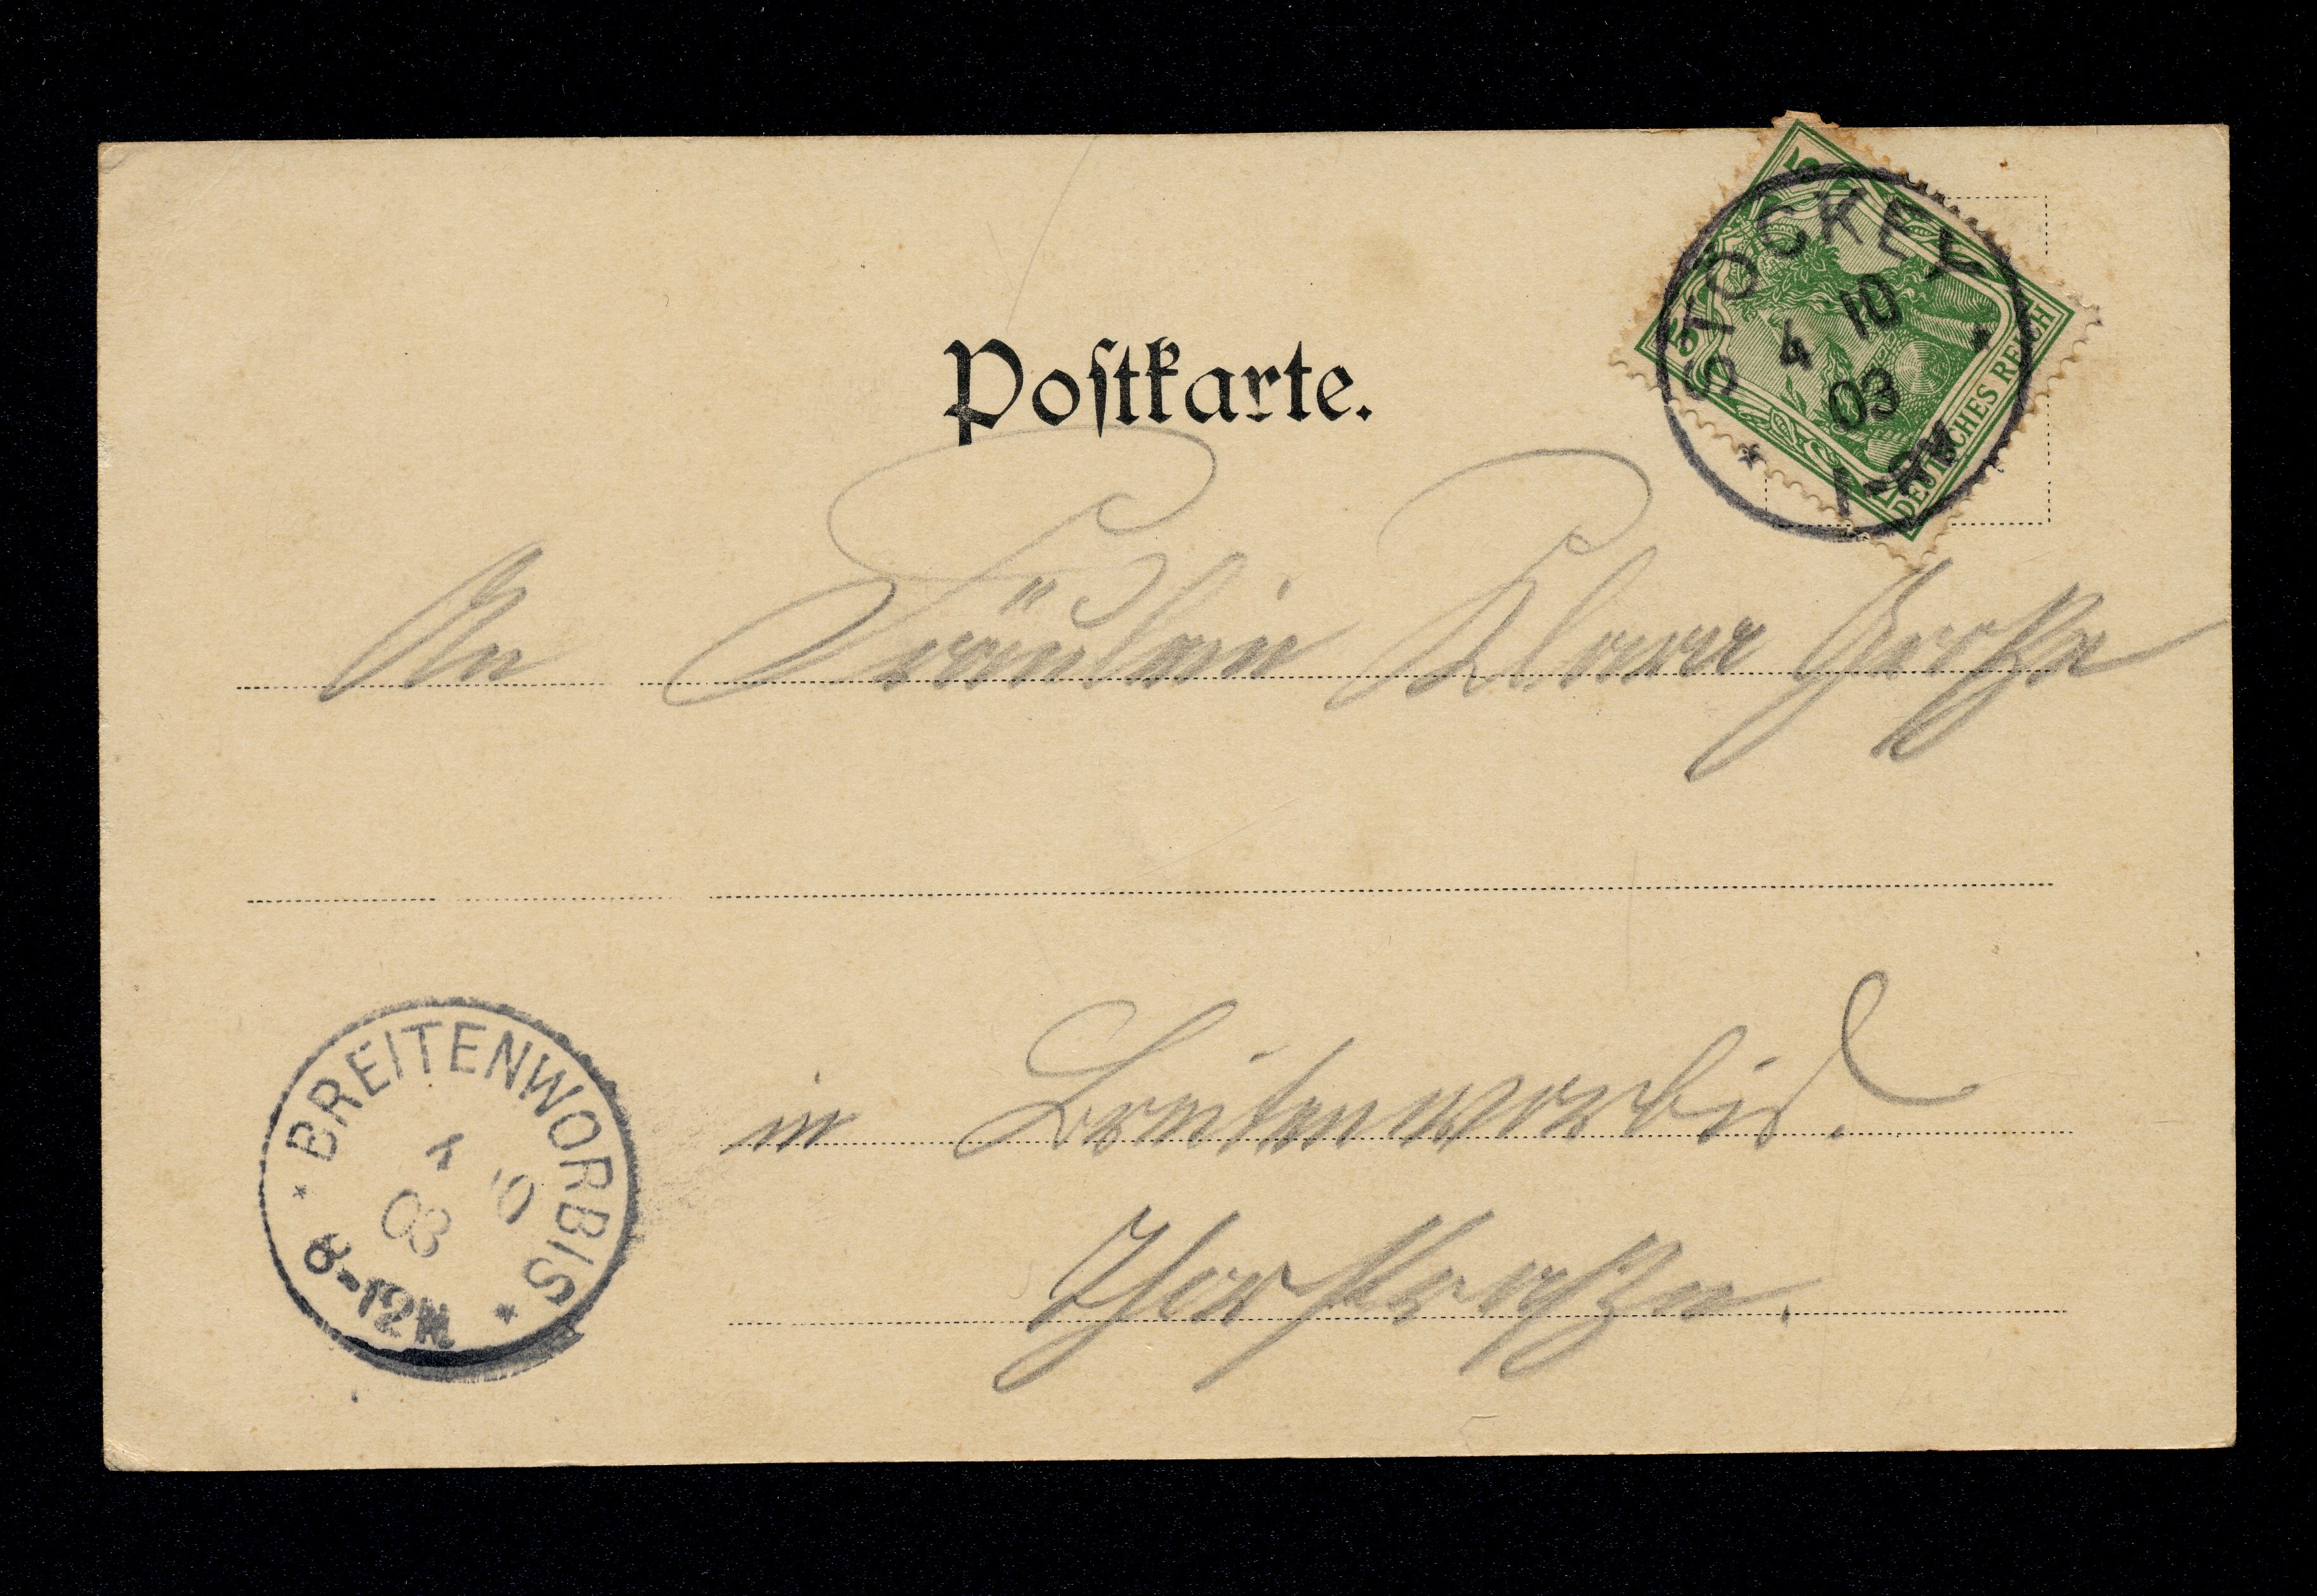 Postkarte.
5 5
DEUTSCHES REICH
STÖCKEY
4 10
03
1-8 N
An Fräulein Klara Große
in Breitenworbis.
BREITENWORBIS
4 10
03
8-12 N